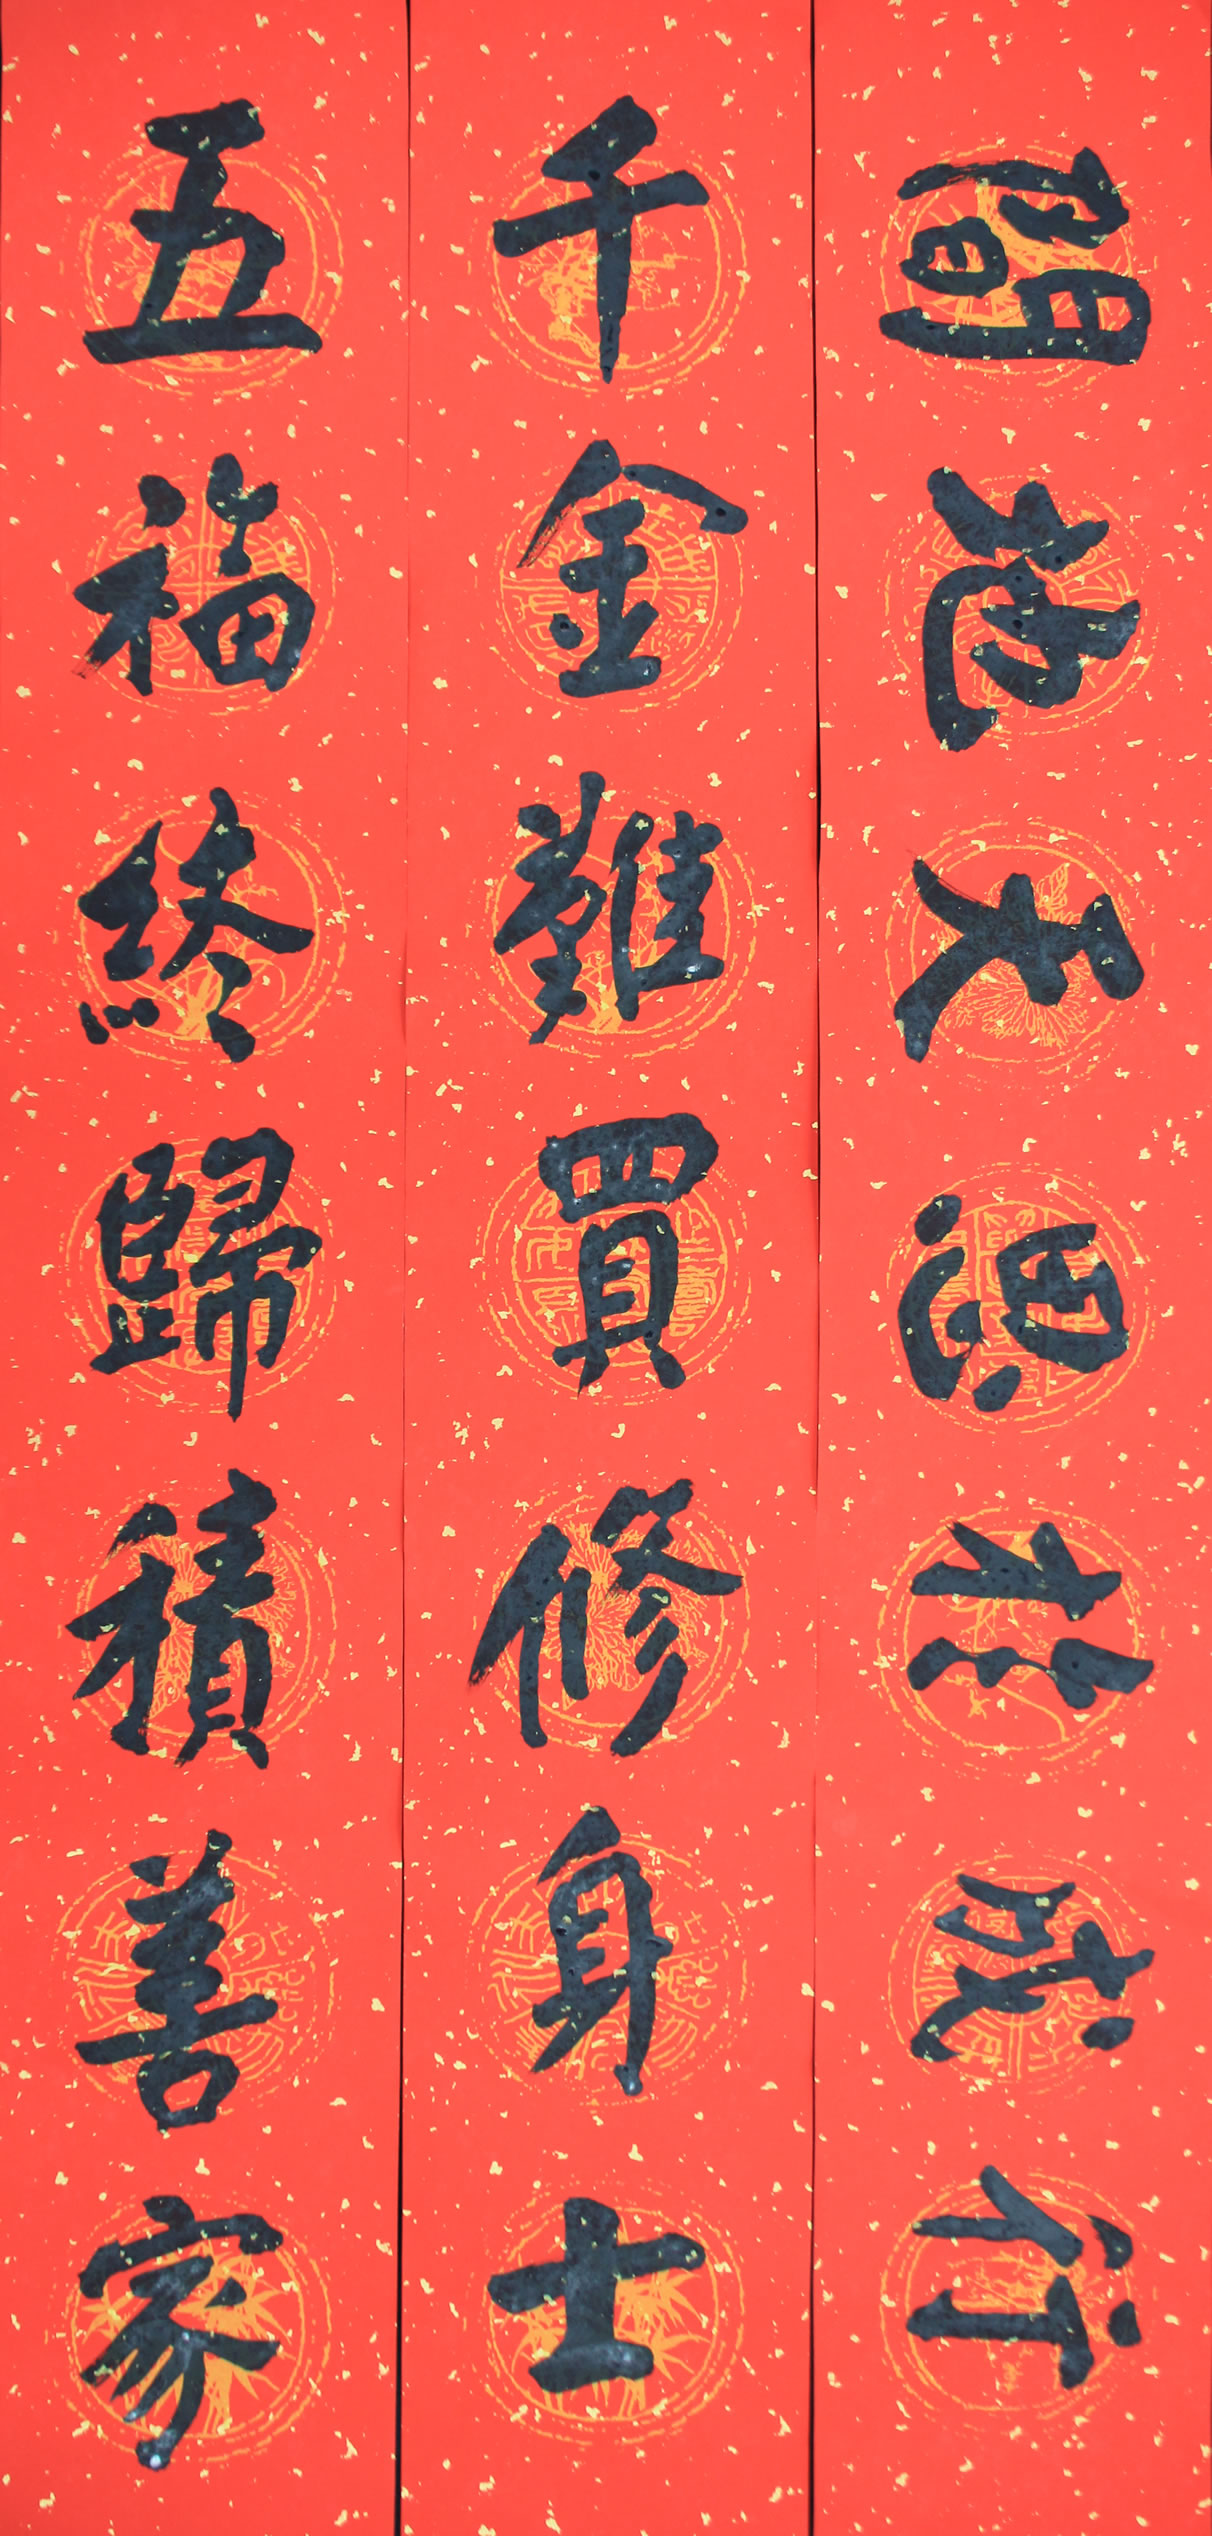 行成於思天地間
千金難買修身士
五福終歸積善家